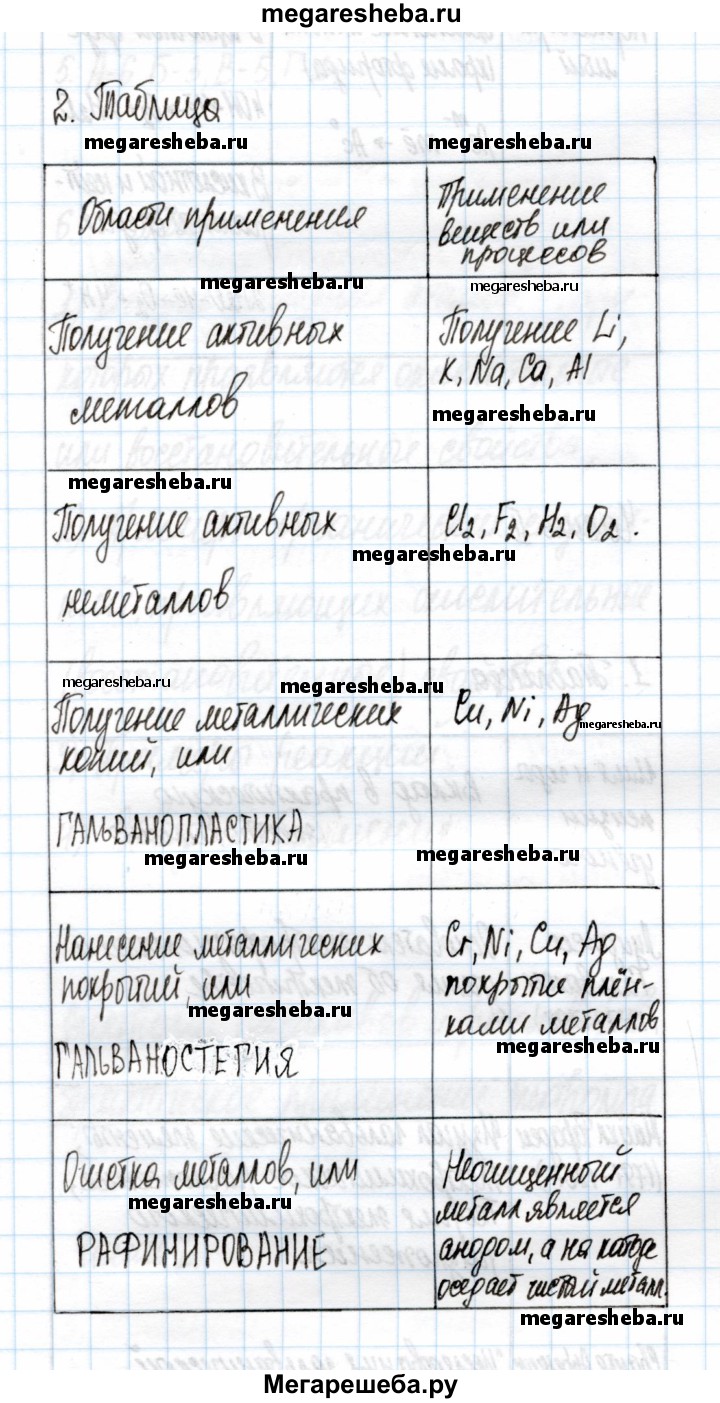 megaresheba.ru
2. Таблица
megaresheba.ru megaresheba.ru
Области применения
Применение
веществ или
процессов
megaresheba.ru
megaresheba.ru
Получение активных
металлов
Получение Li,
K, Na, Ca, Al
megaresheba.ru
megaresheba.ru
Получение активных
неметаллов
Cl₂, F₂, H₂, O₂.
megaresheba.ru
megaresheba.ru
megaresheba.ru
Получение металлических
копий, или
ГАЛЬВАНОПЛАСТИКА
Cu, Ni, Ag
megaresheba.ru
megaresheba.ru
megaresheba.ru
Нанесение металлических
покрытий, или
ГАЛЬВАНОСТЕГИЯ
Cr, Ni, Cu, Ag
покрытие плён-
ками металлов
megaresheba.ru
megaresheba.ru
Очистка металлов, или
РАФИНИРОВАНИЕ
Неочищенный
металл является
анодом, а на катоде
оседает чистый металл.
megaresheba.ru
megaresheba.ru
Мегарешеба.ру